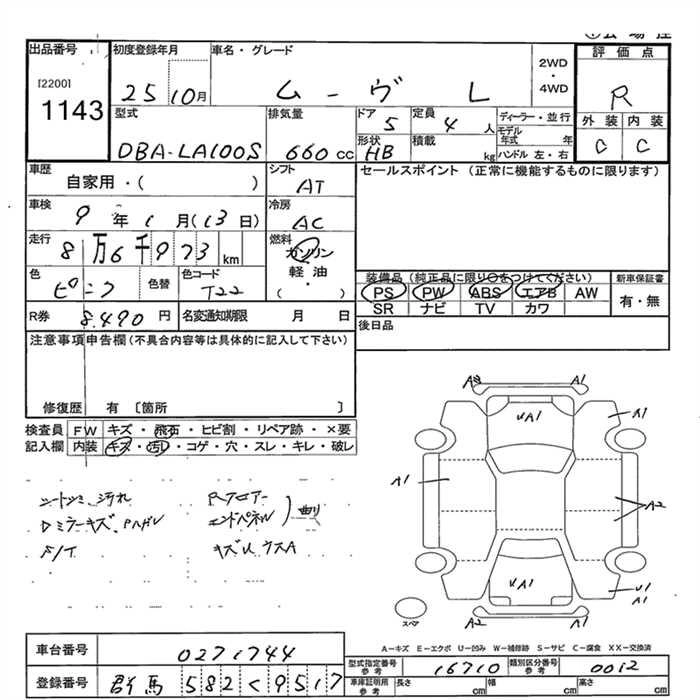 出品番号 初度登録年月 車名・グレード 2WD・4WD 評価点
[2200] 1143 25 10月 ムーヴ L R
型式 排気量 ドア 5 定員 4人 ディーラー・並行 外装 内装
DBA-LA100S 660cc 形状 HB 積載 kg モデル年式 年 ハンドル 左・右 C C
車歴 自家用・( ) シフト AT セールスポイント (正常に機能するものに限ります)
車検 9年1月(13日) 冷房 AC
走行 8万6千973km 燃料 ガソリン 軽油 ・( )
色 ピンク 色替 色コード T22
装備品(純正品に限り○をつけてください) 新車保証書
PS PW ABS エアB AW 有・無
SR ナビ TV カワ
R券 8,490円 名変通知期限 月 日 後日品
注意事項申告欄(不具合内容等は具体的に記入して下さい)
修復歴 有 〔箇所 〕
検査員 FW キズ・飛石・ヒビ割・リペア跡・×要
記入欄 内装 キズ・汚レ・コゲ・穴・スレ・キレ・破レ
シートシミ汚れ Rフロアー
エンドパネル 曲り
F/T
A1 A1
UA1 A1
A1 A2
UA1 U1 A1
A2 A1
スペア
A-キズ E-エクボ U-凹み W-補修跡 S-サビ C-腐食 XX-交換済
車台番号 0271744
登録番号 群馬 582 く 9517
型式指定番号 参考 16710 類別区分番号 参考 0012
車庫証明用 参考 長さ cm 幅 cm 高さ cm